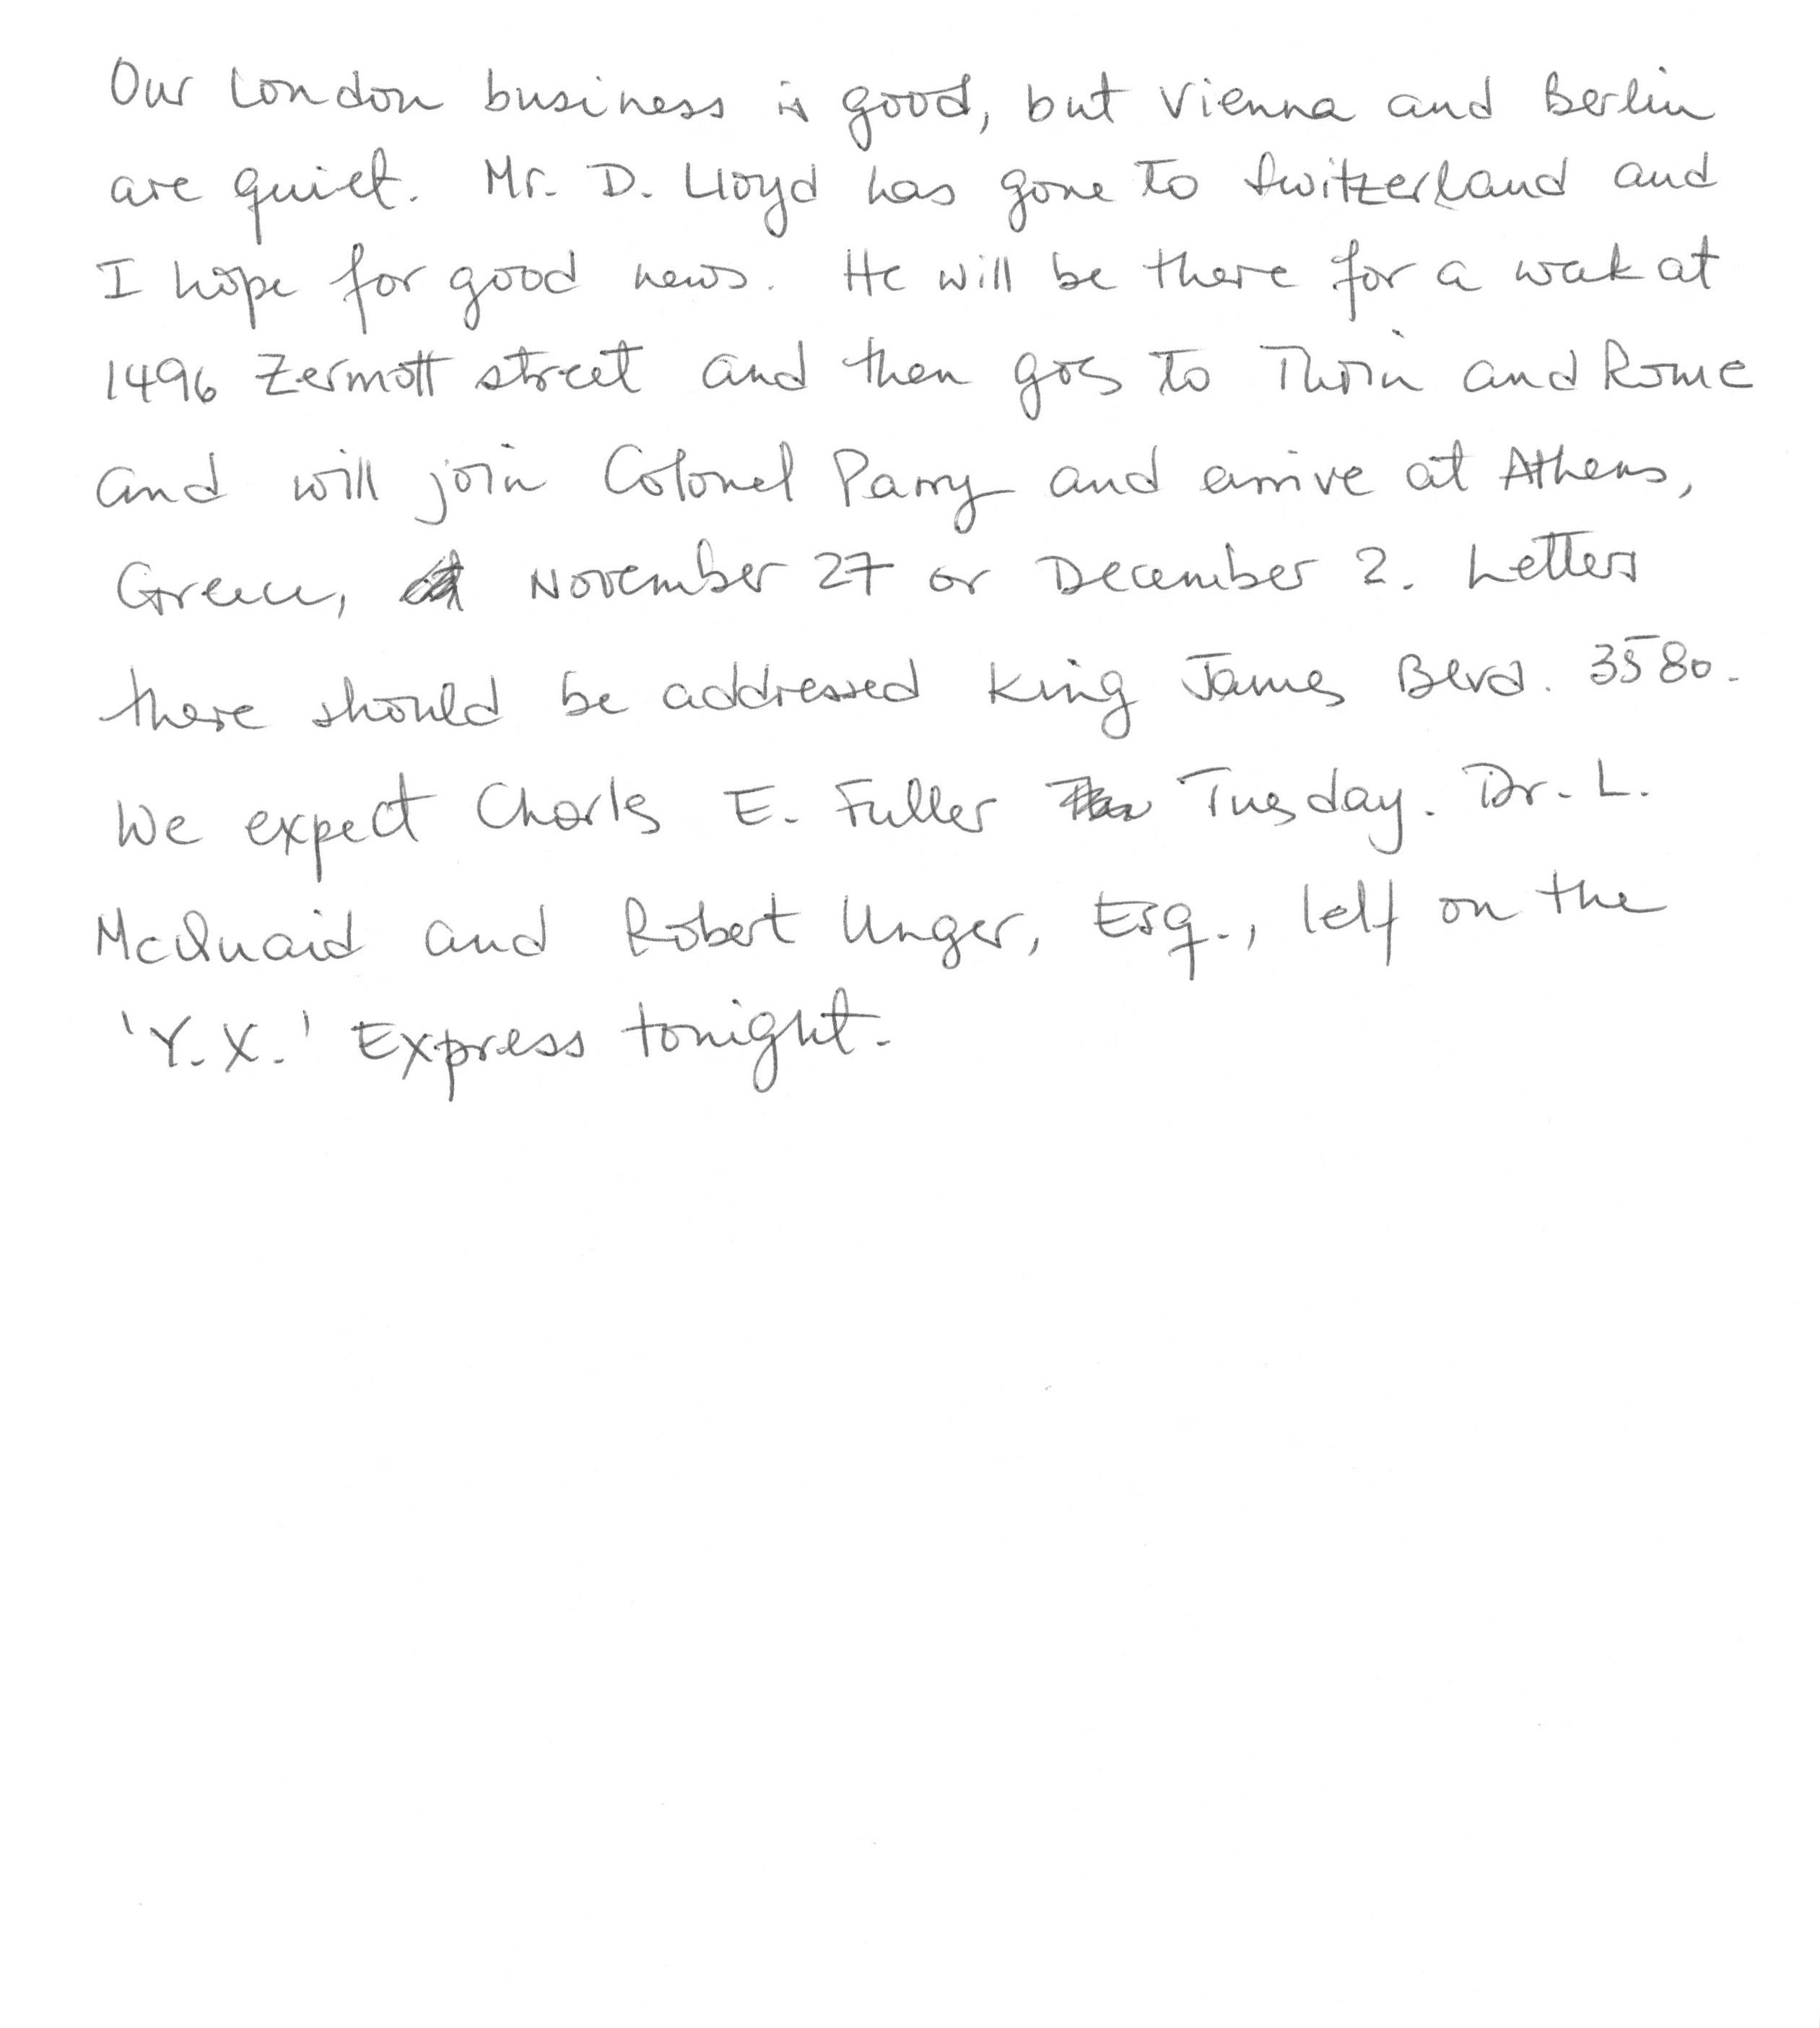 Our London business is good, but Vienna and Berlin
are quiet. Mr. D. Lloyd has gone to Switzerland and
I hope for good news. He will be there for a week at
1496 Zermott street and then goes to Thrin and Rome
and will join Colonel Parry and arrive at Athens,
Greece, November 27 or December 2. Letters
there should be addressed King James Blvd. 3580.
We expect Charls E. Fuller Tuesday. Dr. L.
McQuaid and Robert Unger, Esq., lelf on the
'Y.X.' Express tonight.